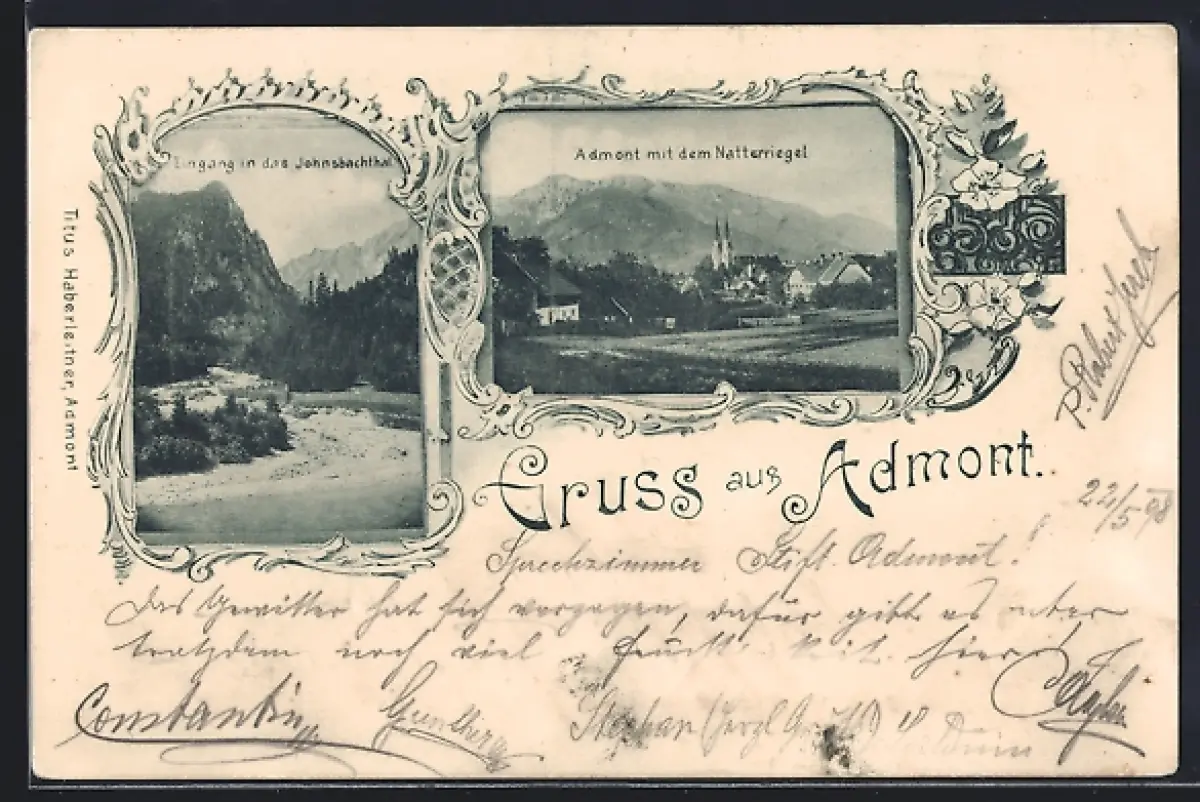 Eingang in das Johnsbachthal
Admont mit dem Natterriegel
Titus Haberleitner, Admont
Gruss aus Admont.
22/5 98
Sprechzimmer Stift Admont!
Das Gewitter hat sich verzogen, dafür gibt es aber
trotzdem noch viel hier
Constantin
Gunther
Stephan
P. Robert